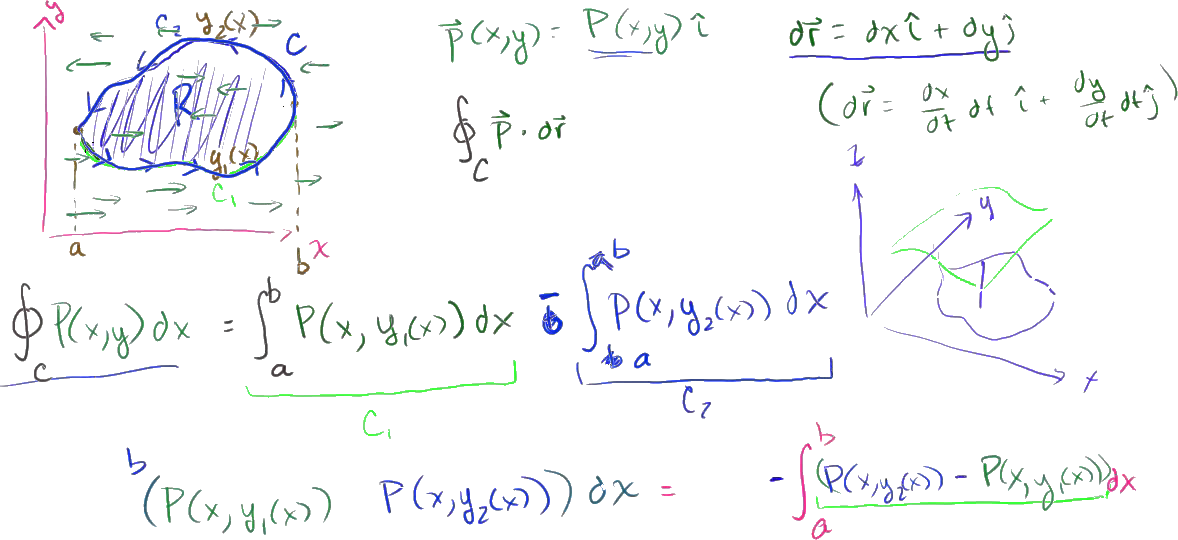 y
C₂ y₂(x) C
R
y₁(x)
C₁
a b x
P⃗(x,y) = P(x,y) î
∮_C P⃗ · dr⃗
dr⃗ = dx î + dy ĵ
(dr⃗ = dx/dt dt î + dy/dt dt ĵ)
z
y
x
∮_C P(x,y) dx = ∫_a^b P(x, y₁(x)) dx - ∫_a^b P(x, y₂(x)) dx
C₁ C₂
b (P(x, y₁(x)) P(x, y₂(x))) dx = - ∫_a^b (P(x, y₂(x)) - P(x, y₁(x))) dx